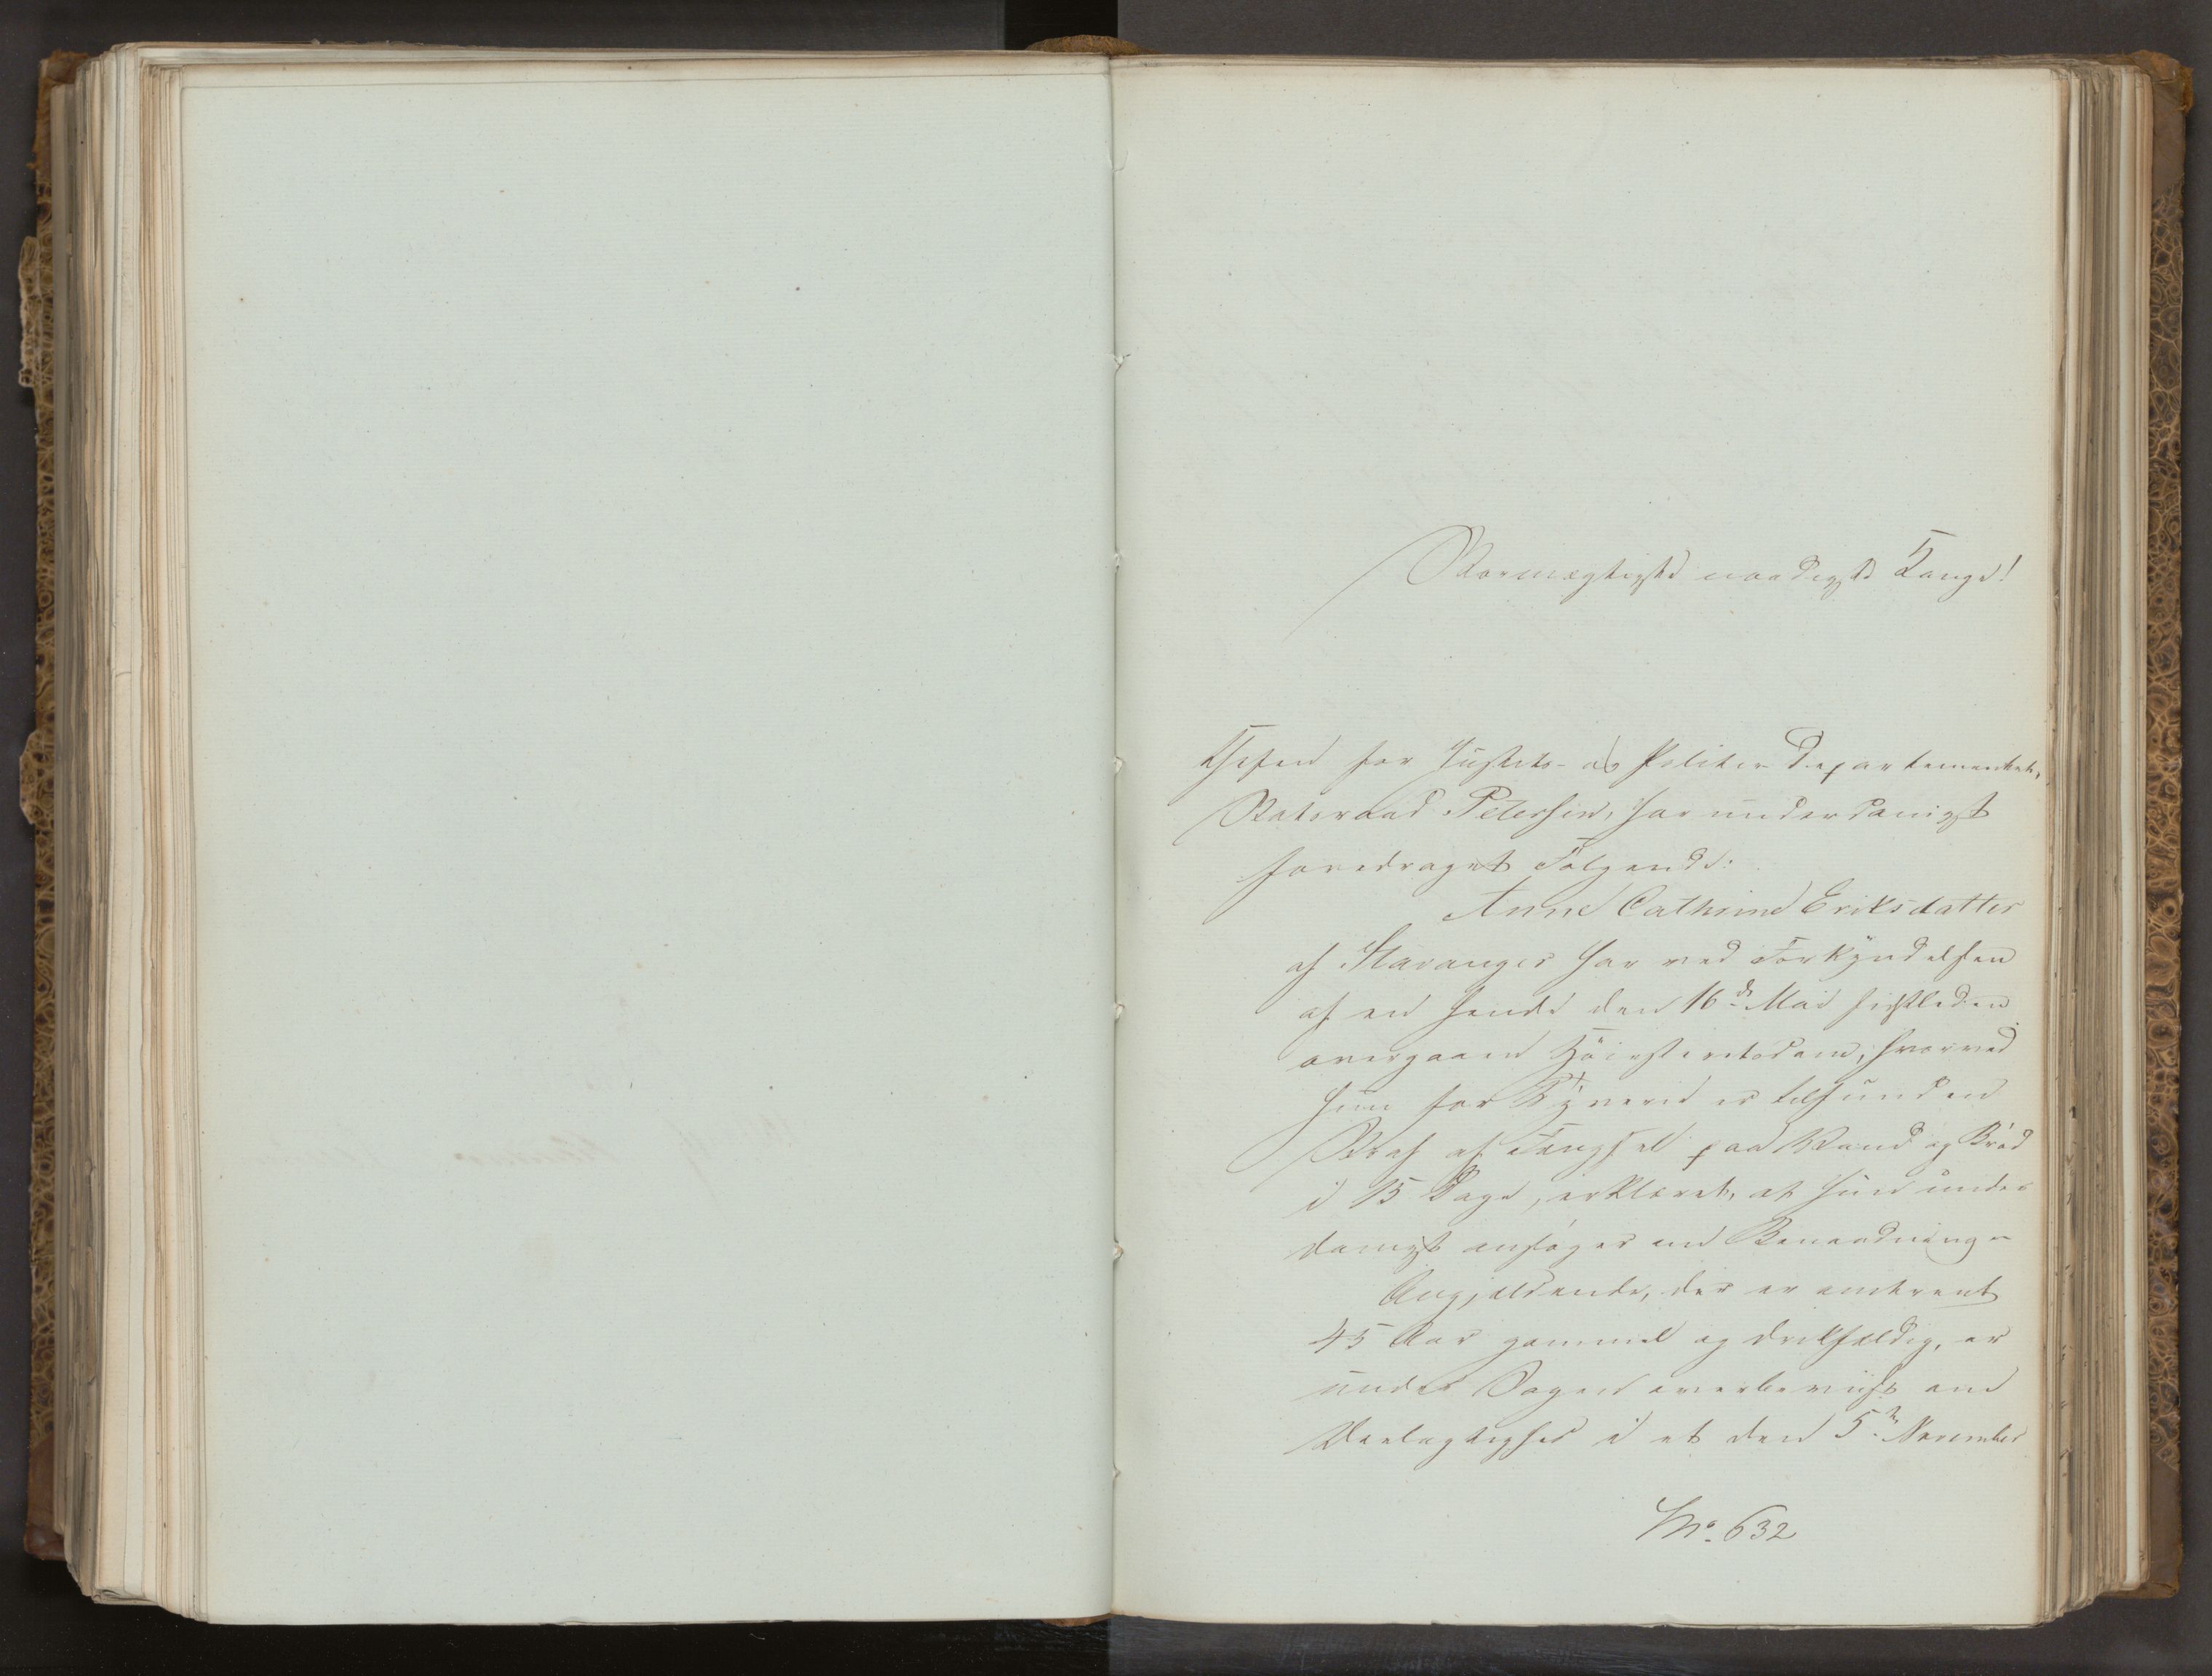 Stormægtigste naadigste Konge!
Chefen for Justits- og Politie-Departementet,
Statsraad Petersen, har underdanigst
foredraget Følgende:
Anne Cathrine Eriksdatter
af Stavanger har ved Forkyndelsen
af en hende den 16de Mai sidstleden
overgaaen Høiesteretsdom, hvorved
hun for Tyverie er tilfunden
Straf af Fængsel paa Vand og Brød
i 15 Dage, erklæret, at hun under
danigst ansøger om Benaadning.
Angjældende, der er omtrent
45 Aar gammel og drikfældig, er
under Sagen overbeviist om
Deelagtighed i et den 5te November
No. 632